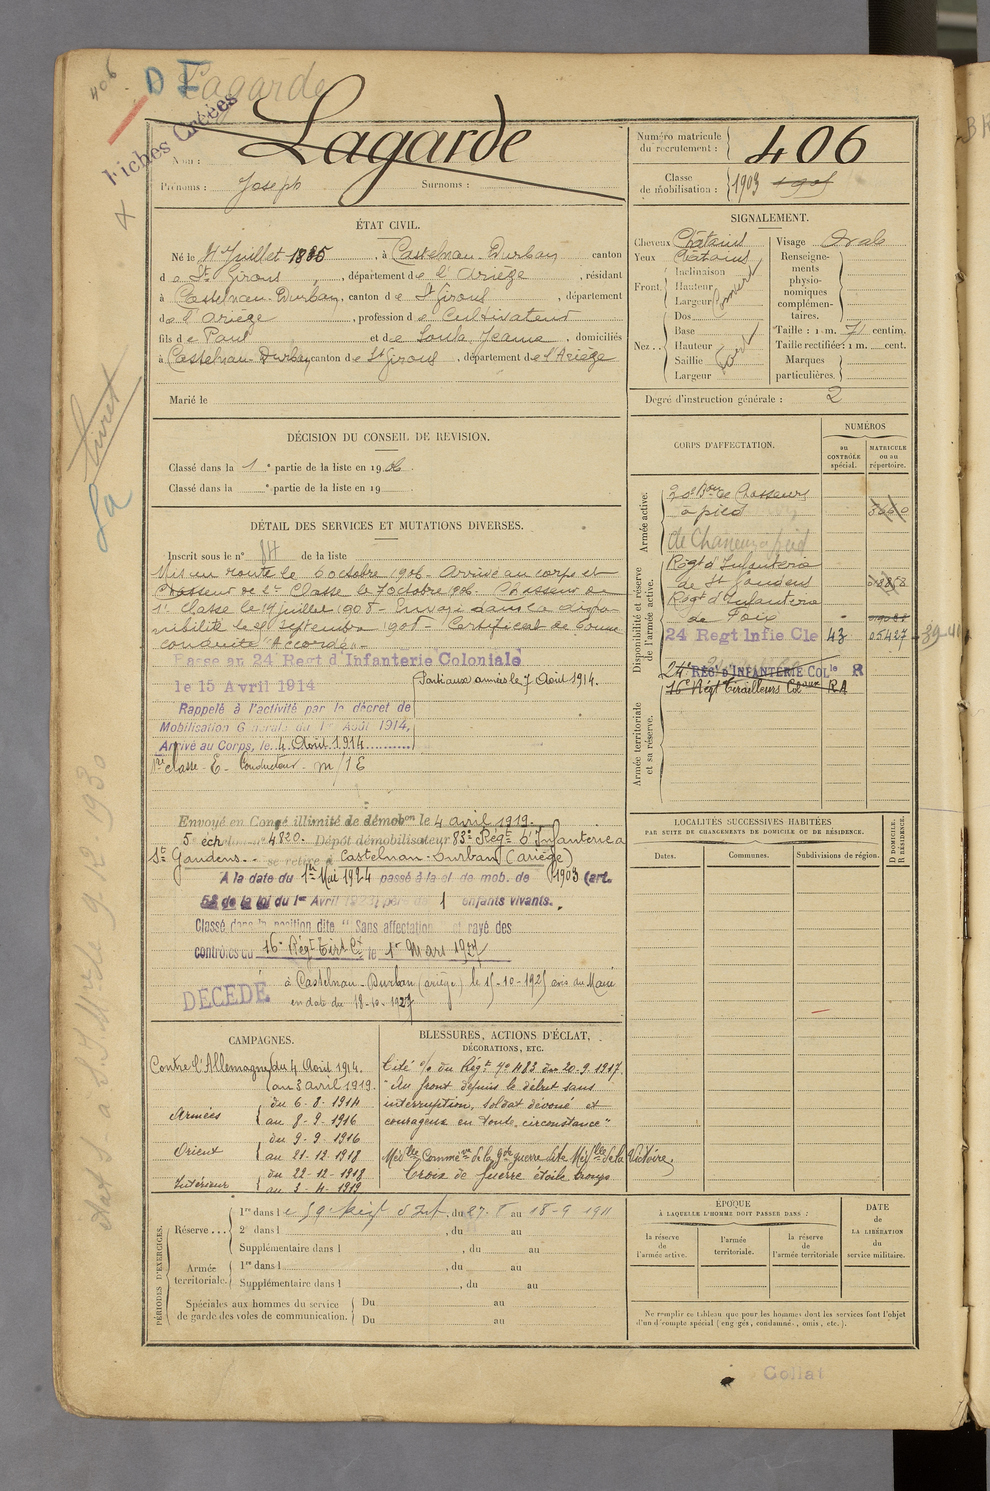 406
D E
Lagarde
Fiches Créées
Lagarde
Nom :
Prénoms : Joseph Surnoms :
Numéro matricule
du recrutement :
406
Classe
de mobilisation : 1903
ÉTAT CIVIL.
Né le 4 Juillet 1885, à Castelnau-Durban canton
de St Girons, département de l'Ariège, résidant
à Castelnau-Durban, canton de St Girons, département
de l'Ariège, profession de Cultivateur
fils de Paul et de Soula Jeanne, domiciliés
à Castelnau-Durban, canton de St Girons, département de l'Ariège
Marié le
SIGNALEMENT.
Cheveux Châtains
Yeux Châtains
Front.
Inclinaison
Hauteur
Largeur
Nez...
Dos
Base
Hauteur
Saillie
Largeur
Visage Ovale
Renseigne-
ments
physio-
nomiques
complémen-
taires.
Taille : 1 m. 71 centim.
Taille rectifiée : 1 m. cent.
Marques
particulières.
Degré d'instruction générale : 2
La Livret
DÉCISION DU CONSEIL DE REVISION.
Classé dans la 1e partie de la liste en 1906.
Classé dans la e partie de la liste en 19
DÉTAIL DES SERVICES ET MUTATIONS DIVERSES.
Inscrit sous le n° de la liste
Mis en route le 6 octobre 1906. Arrivé au corps et
Chasseur de 2e Classe le 7 octobre 1906. Chasseur de
1e classe le 14 juillet 1908. Envoyé dans la dispo-
nibilité le septembre 1908. Certificat de bonne
conduite "Accordé"
Passe au 24 Regt d'Infanterie Coloniale
le 15 Avril 1914
Rappelé à l'activité par le décret de
Mobilisation Générale du 1er Août 1914,
Arrivé au Corps, le 4 Août 1914
Parti aux armées le 7 Août 1914.
1re classe - E - Conducteur - m/1E
Envoyé en Congé illimité de démobon le 4 avril 1919.
5 échelon n° 4820. Dépôt démobilisateur 83e Régt d'Infanterie à
St Gaudens. se retire à Castelnau-Durban (ariège)
A la date du 1er Mai 1924 passé à la cl. de mob. de 1903 (art.
58 de la loi du 1er Avril 1923) père de 1 enfants vivants.
Classé dans la position dite "Sans affectation" et rayé des
contrôles du 16e Régt Tirlrs Cx le 1er Mars 1927
DÉCÉDÉ
à Castelnau-Durban (ariège) le 15-10-1927 avis du Maire
en date du 18-10-1927
CORPS D'AFFECTATION.
NUMÉROS
au
CONTRÔLE
spécial.
MATRICULE
ou au
répertoire.
Armée active.
20e Bon de Chasseurs
à pied
de Chasseurs à pied
Disponibilité et réserve
de l'armée active.
Régt d'Infanterie
de St Gaudens
Régt d'Infanterie
de Foix
24 Regt Infie Cle 43 05427
24e REGt D'INFANTERIE COLle R
16e Régt Tirailleurs Colaux RA
Armée territoriale
et sa réserve.
LOCALITÉS SUCCESSIVES HABITÉES
PAR SUITE DE CHANGEMENTS DE DOMICILE OU DE RÉSIDENCE.
Dates.
Communes.
Subdivisions de région.
D DOMICILE.
R RÉSIDENCE.
CAMPAGNES.
Contre l'Allemagne du 4 Août 1914.
au 3 avril 1919.
Armées du 6-8-1914
au 8-9-1916
Orient du 9-9-1916
au 21-12-1918
Intérieur du 22-12-1918
au 3-4-1919
BLESSURES, ACTIONS D'ÉCLAT,
DÉCORATIONS, ETC.
Cité o/o du Régt n° 483 du 20-9-1917.
"Au front depuis le début sans
interruption, soldat dévoué et
courageux en toute circonstance"
Médlle Commve de la gde guerre dite Médlle de la Victoire,
Croix de guerre étoile bronze
PÉRIODES D'EXERCICES.
Réserve...
1re dans le 59e Régt d'Inf, du 27-8 au 18-9 1911
2e dans l , du au
Supplémentaire dans l , du au
Armée
territoriale.
1re dans l , du au
Supplémentaire dans l , du au
Spéciales aux hommes du service
de garde des voies de communication.
Du au
Du au
ÉPOQUE
À LAQUELLE L'HOMME DOIT PASSER DANS :
la réserve
de
l'armée active.
l'armée
territoriale.
la réserve
de
l'armée territoriale
DATE
de
LA LIBÉRATION
du
service militaire.
Ne remplir ce tableau que pour les hommes dont les services font l'objet
d'un décompte spécial (engagés, condamnés, omis, etc.).
Collat